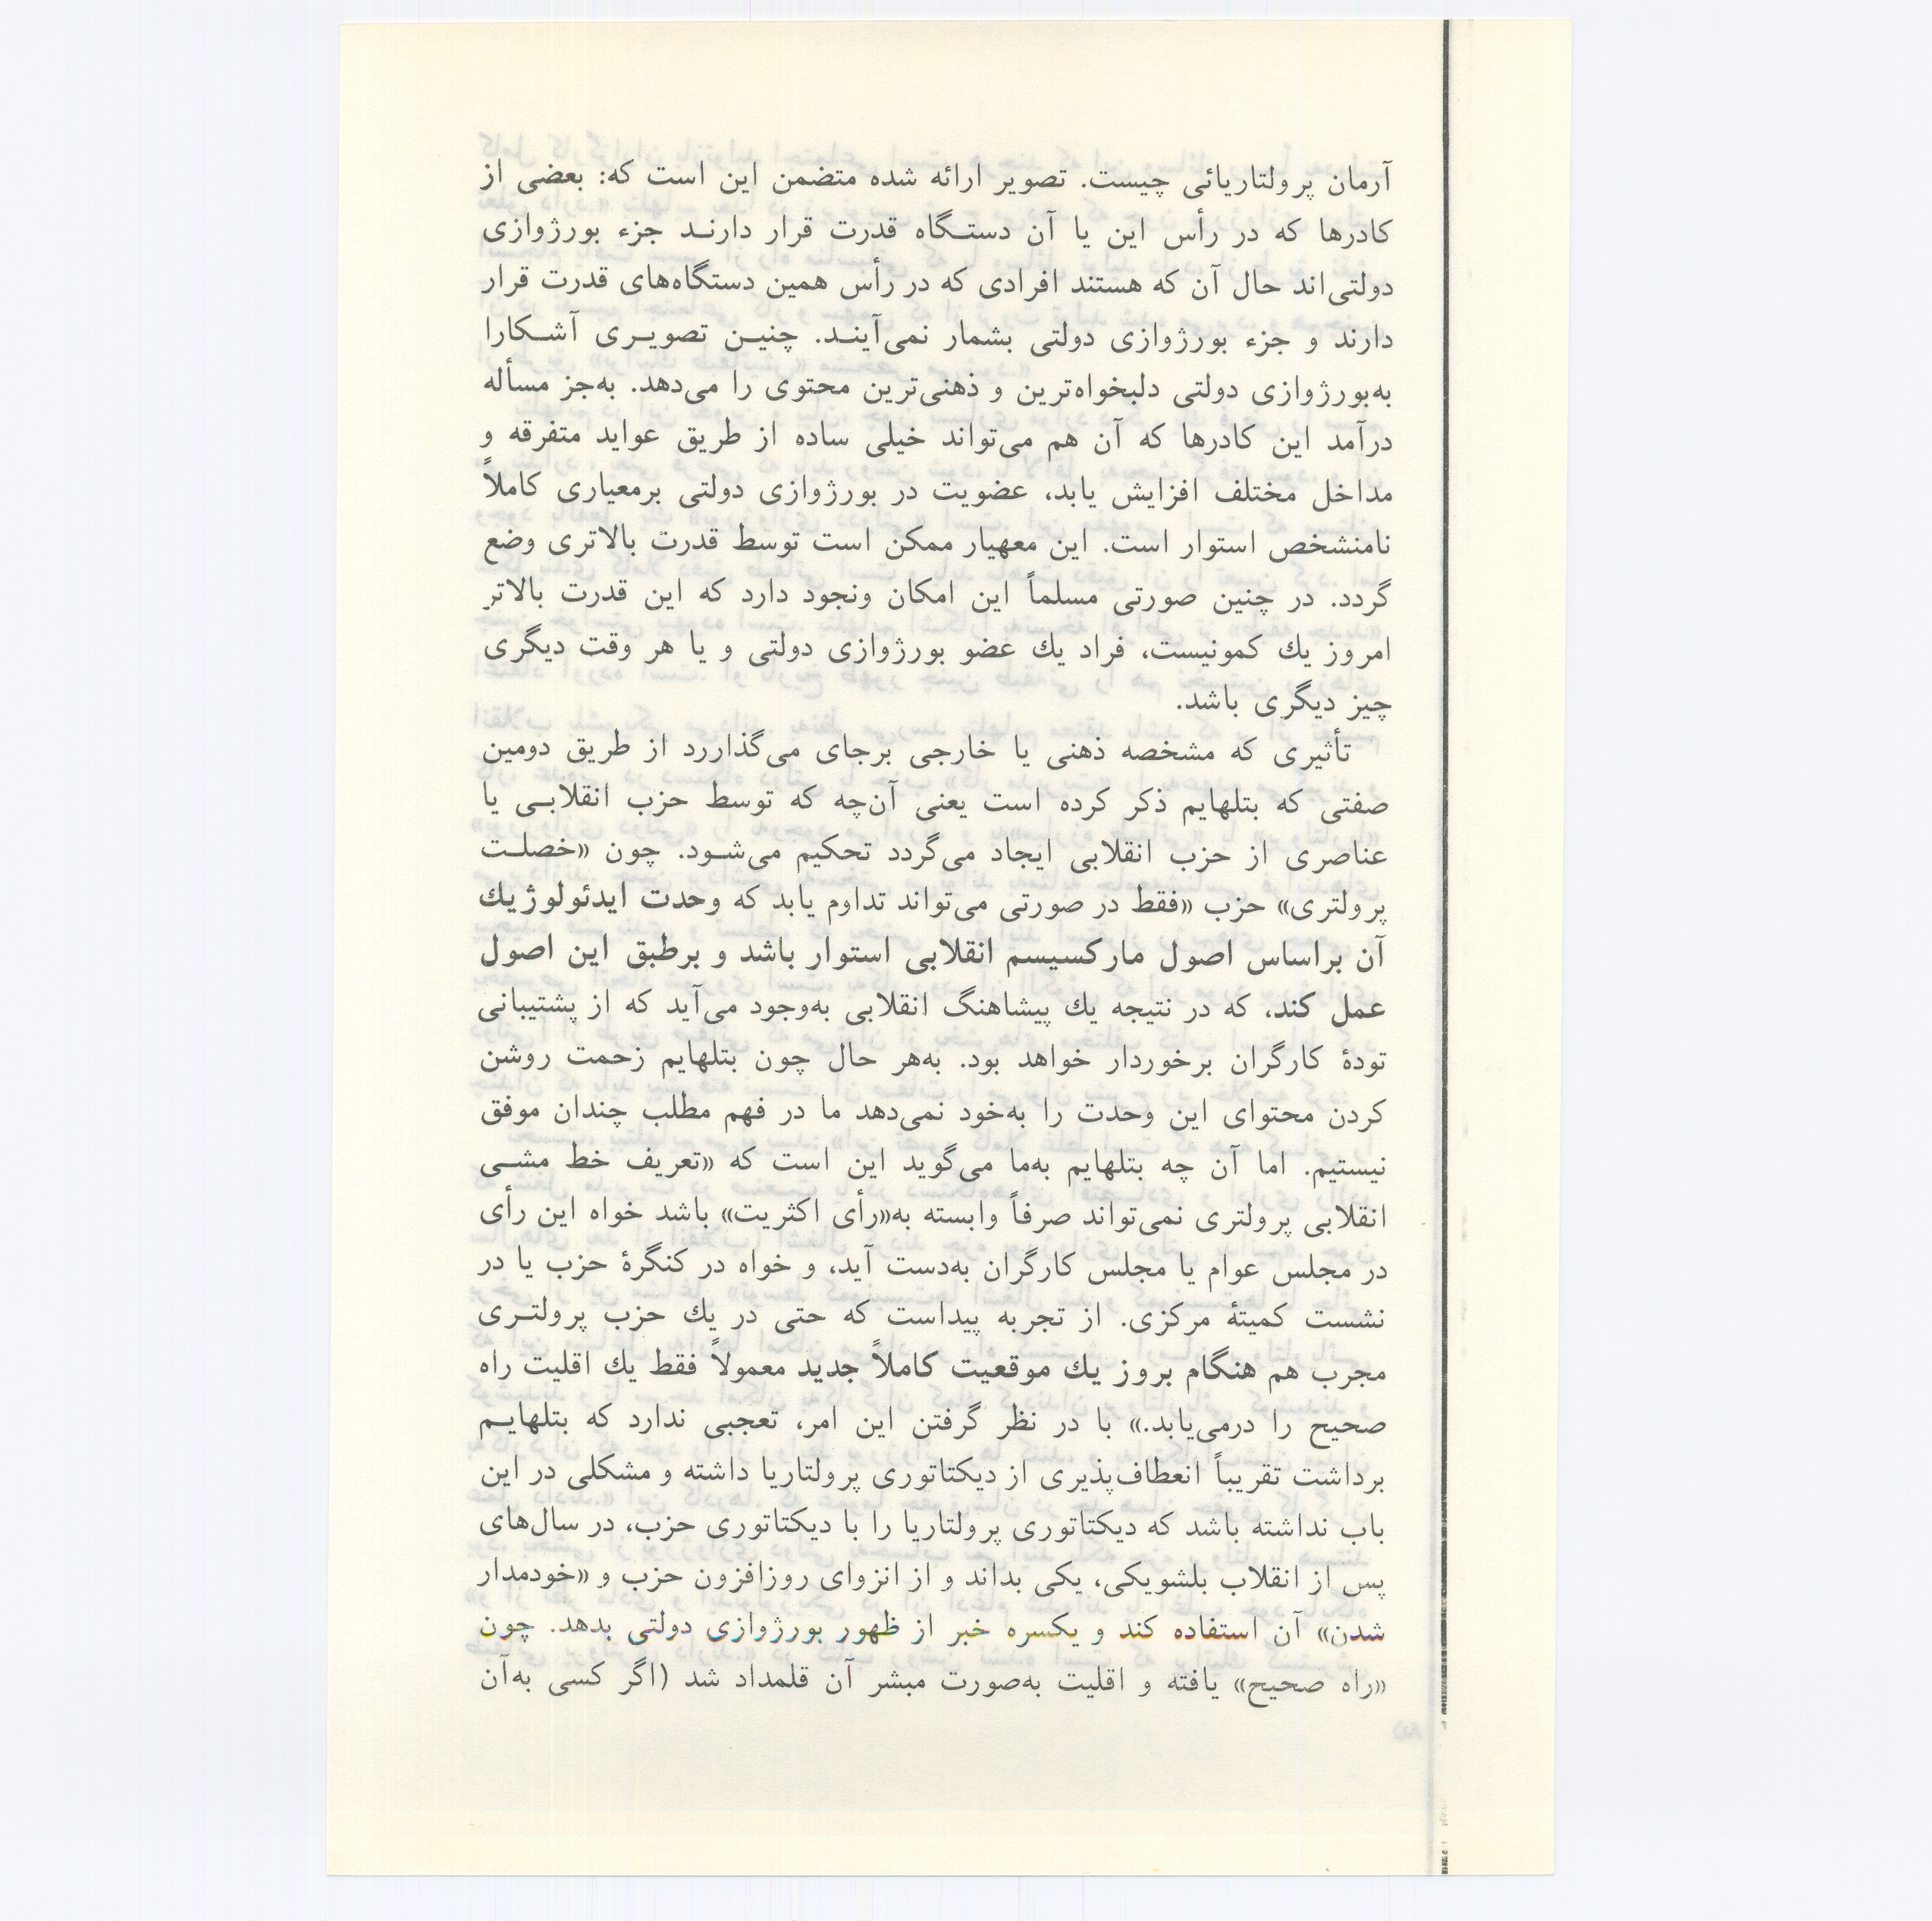 آرمان پرولتاریائی چیست. تصویر ارائه شده متضمن این است که: بعضی از
کادرها که در رأس این یا آن دستـگاه قدرت قرار دارنـد جزء بورژوازی
دولتی‌اند حال آن که هستند افرادی که در رأس همین دستگاه‌های قدرت قرار
دارند و جزء بورژوازی دولتی بشمار نمی‌آینـد. چنیـن تصویـری آشـکارا
به‌بورژوازی دولتی دلبخواه‌ترین و ذهنی‌ترین محتوی را می‌دهد. به‌جز مسأله
درآمد این کادرها که آن هم می‌تواند خیلی ساده از طریق عواید متفرقه و
مداخل مختلف افزایش یابد، عضویت در بورژوازی دولتی برمعیاری کاملاً
نامنشخص استوار است. این معهیار ممکن است توسط قدرت بالاتری وضع
گردد. در چنین صورتی مسلماً این امکان ونجود دارد که این قدرت بالاتر
امروز یك کمونیست، فراد یك عضو بورژوازی دولتی و یا هر وقت دیگری
چیز دیگری باشد.
تأثیری که مشخصه ذهنی یا خارجی برجای می‌گذاررد از طریق دومین
صفتی که بتلهایم ذکر کرده است یعنی آن‌چه که توسط حزب انقلابـی یا
عناصری از حزب انقلابی ایجاد می‌گردد تحکیم می‌شـود. چون «خصلـت
پرولتری» حزب «فقط در صورتی می‌تواند تداوم یابد که وحدت ایدئولوژیك
آن براساس اصول مارکسیسم انقلابی استوار باشد و برطبق این اصول
عمل کند، که در نتیجه یك پیشاهنگ انقلابی به‌وجود می‌آید که از پشتیبانی
تودهٔ کارگران برخوردار خواهد بود. به‌هر حال چون بتلهایم زحمت روشن
کردن محتوای این وحدت را به‌خود نمی‌دهد ما در فهم مطلب چندان موفق
نیستیم. اما آن چه بتلهایم به‌ما می‌گوید این است که «تعریف خط مشـی
انقلابی پرولتری نمی‌تواند صرفاً وابسته به«رأی اکثریت» باشد خواه این رأی
در مجلس عوام یا مجلس کارگران به‌دست آید، و خواه در کنگرهٔ حزب یا در
نشست کمیتهٔ مرکزی. از تجربه پیداست که حتی در یك حزب پرولتـری
مجرب هم هنگام بروز یك موقعیت کاملاً جدید معمولاً فقط یك اقلیت راه
صحیح را درمی‌یابد.» با در نظر گرفتن این امر، تعجبی ندارد که بتلهایـم
برداشت تقریباً انعطاف‌پذیری از دیکتاتوری پرولتاریا داشته و مشکلی در این
باب نداشته باشد که دیکتاتوری پرولتاریا را با دیکتاتوری حزب، در سال‌های
پس از انقلاب بلشویکی، یکی بداند و از انزوای روزافزون حزب و «خودمدار
شدن» آن استفاده کند و یکسره خبر از ظهور بورژوازی دولتی بدهد. چون
«راه صحیح» یافته و اقلیت به‌صورت مبشر آن قلمداد شد (اگر کسی به‌آن